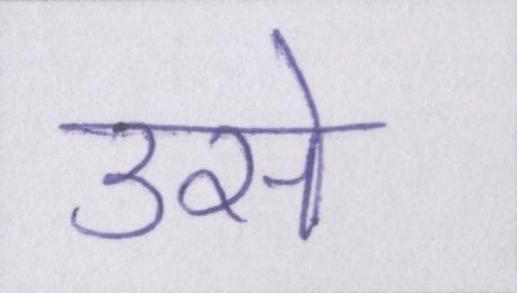 उसे